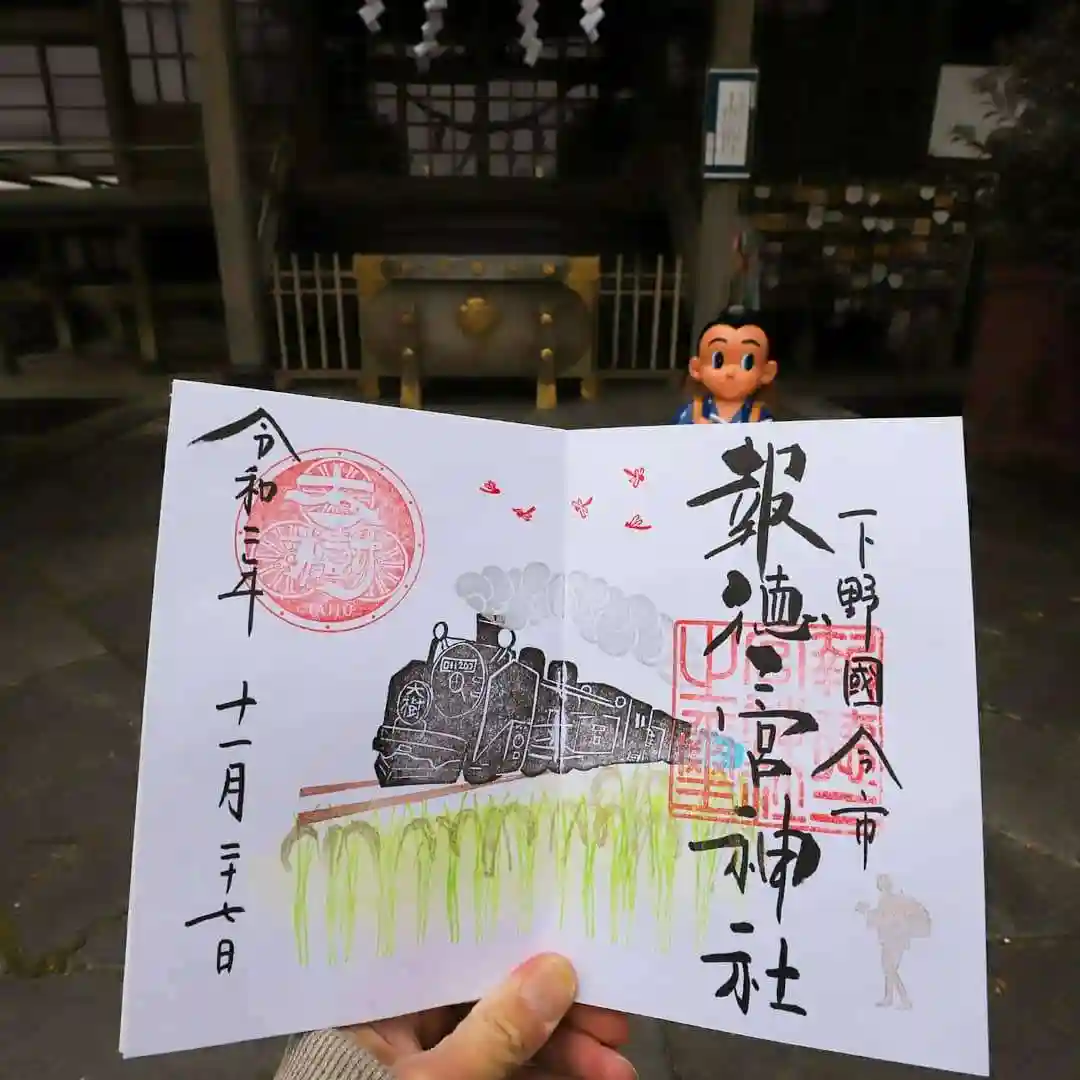 下野國今市
報徳二宮神社
令和三年
十一月二十七日
大樹
TAIJU
C11 207
大樹